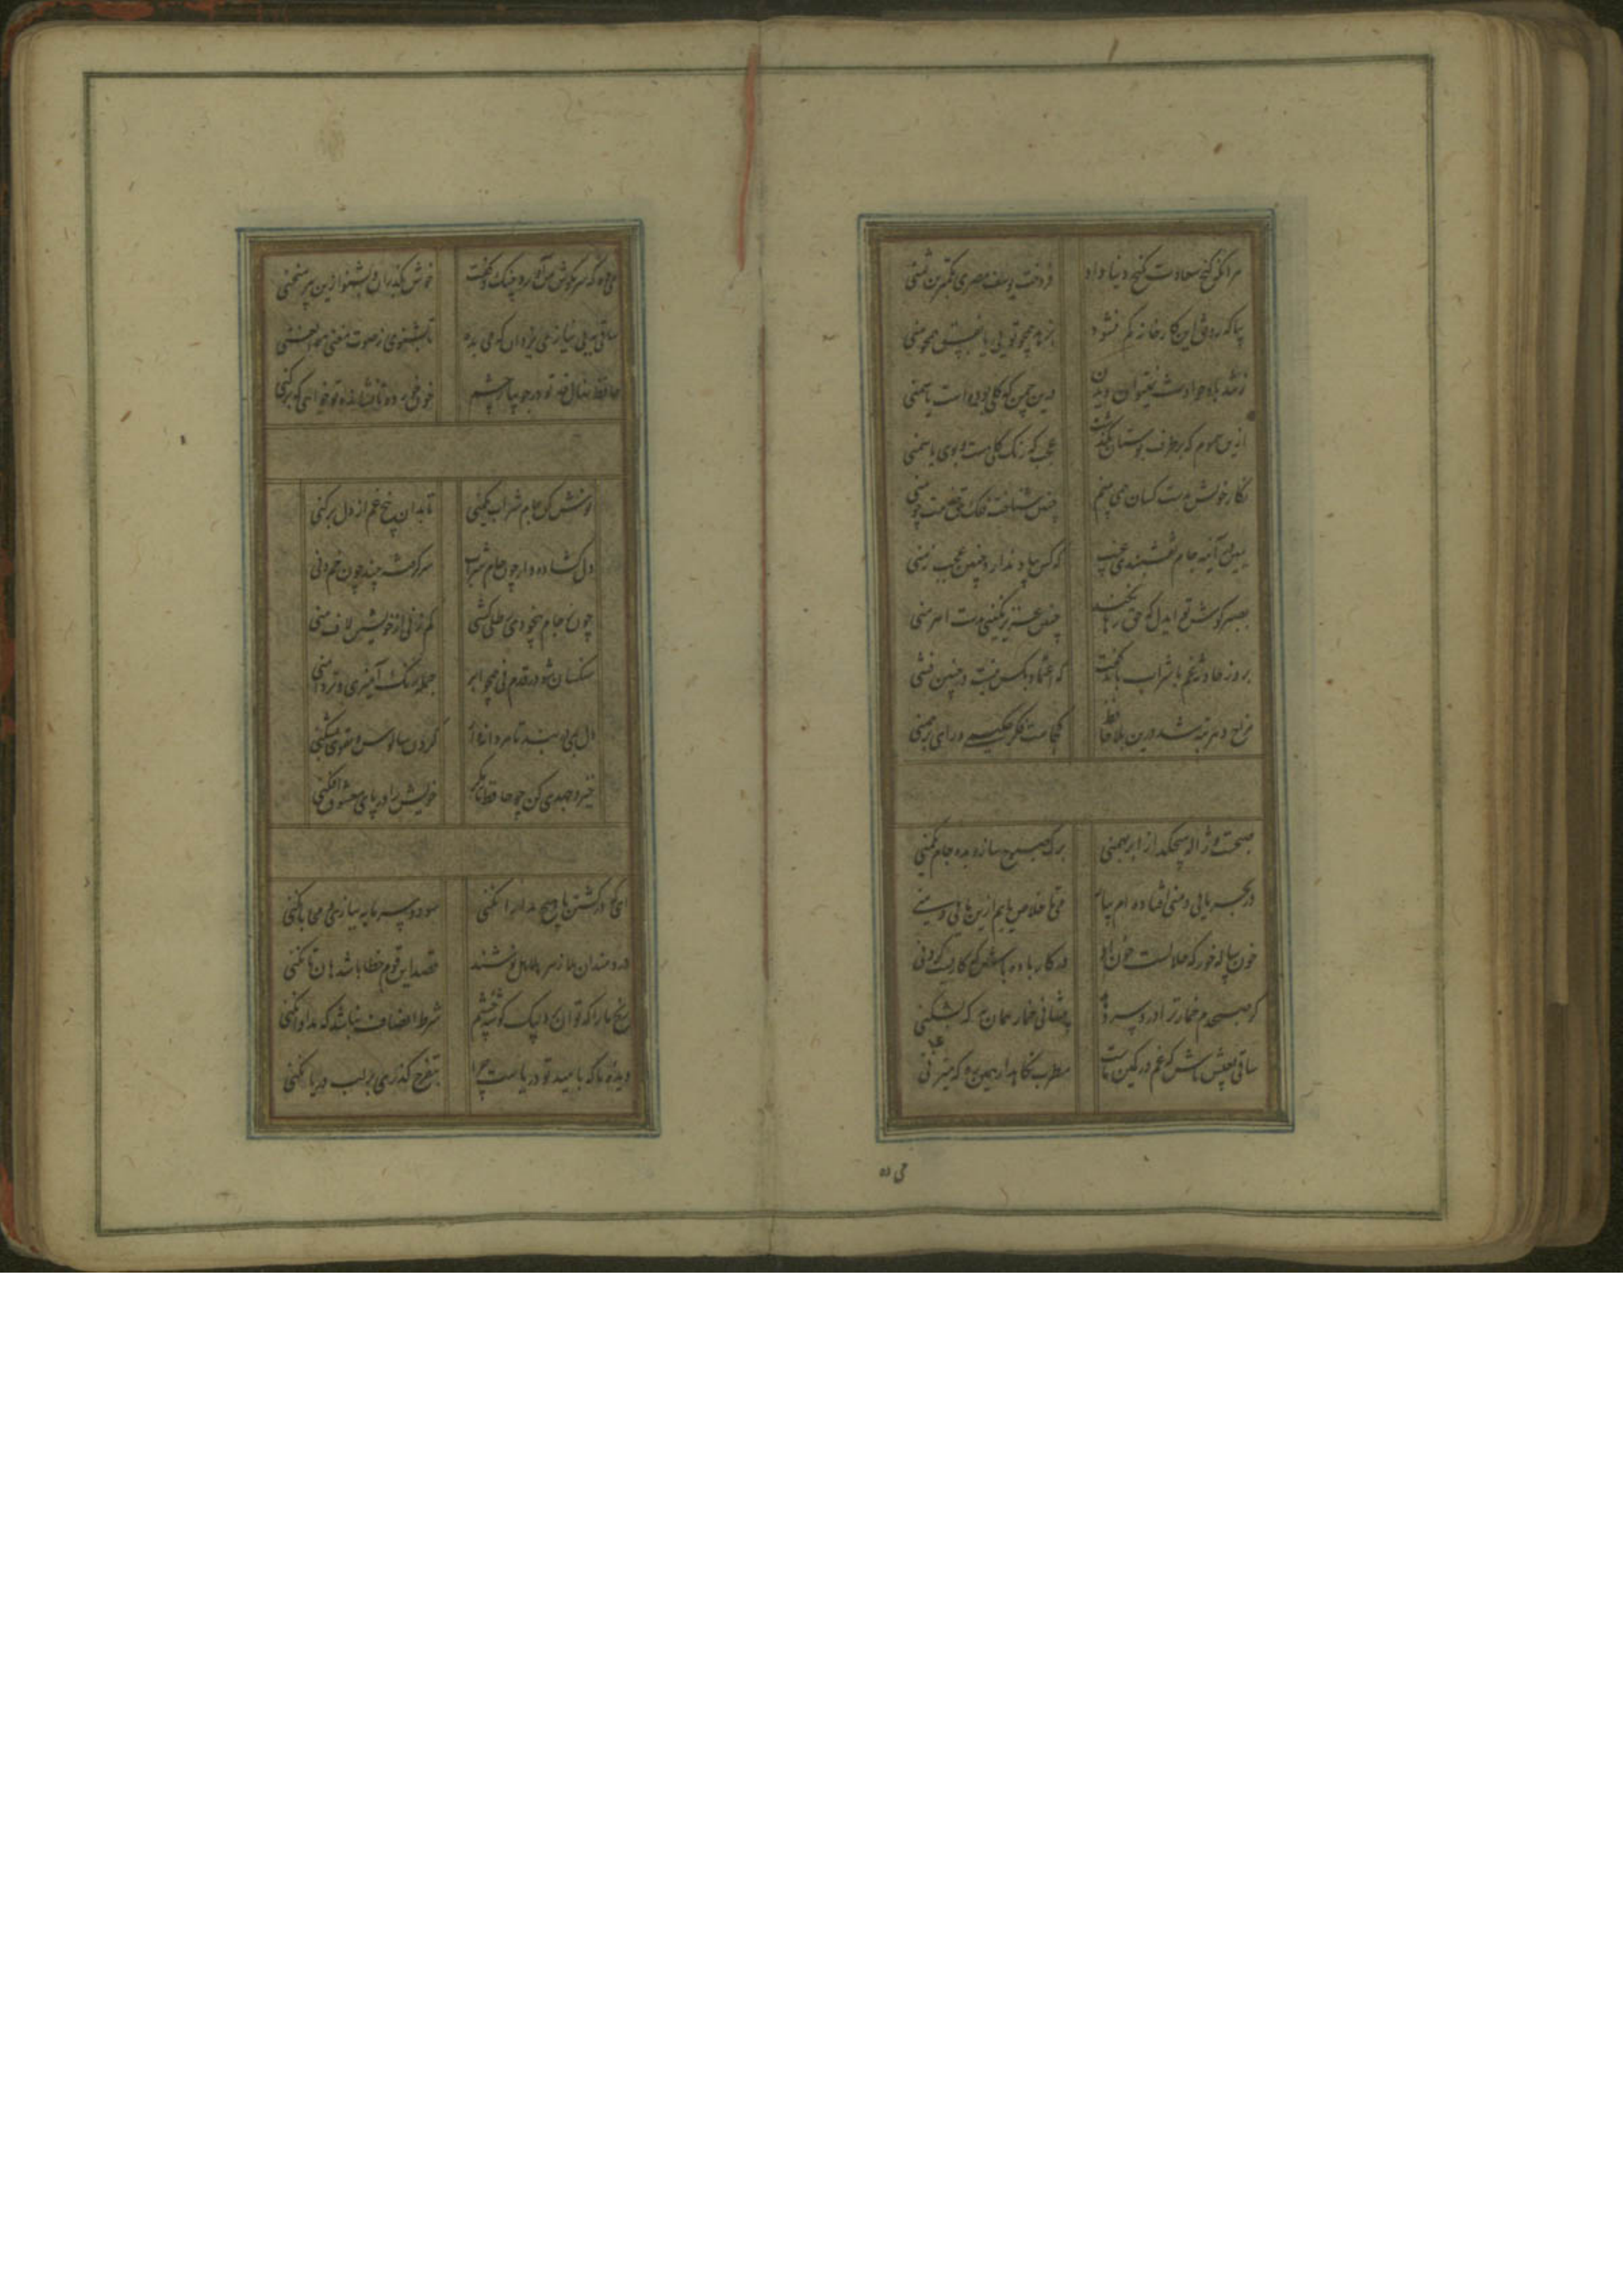 هر آنکه کنج سعادت بگنج دنیا داد فروخت یوسف مصری بکمترین ثمنی
بیا که رونق این کارخانه کم نشود بزهد همچو تویی یا بفسق همچو منی
ز تند باد حوادث نمیتوان دیدن درین چمن که گلی بوده است یا سمنی
ازین سموم که بر طرف بوستان بگذشت عجب که رنگ گلی هست و بوی یاسمنی
نگار خویش بدست کسان همی بینم چنین شناخت فلک حق خدمت چو منی
ببین در آینه جام نقشبندی غیب که کس بیاد ندارد چنین عجب زمنی
بصبر کوش تو ایدل که حق رها نکند چنین عزیز نگینی بدست اهرمنی
بروز حادثه غم با شراب باید گفت که اعتماد بکس نیست در چنین زمنی
مزاج دهر تبه شد درین بلا حافظ کجاست فکر حکیمی و رای برهمنی
صبحست و ژاله میچکد از ابر بهمنی برگ صبوح سازه بده جام یکمنی
در بحر مایی و منی افتاده ام بیار می تا خلاص یابم ازین مایی و منی
خون پیاله خور که حلالست خون او در کار باده باش که کاریست کردنی
گر صبحدم خمار ترا درد سر دهد پیشانی خمار همان به که بشکنی
ساقی بهوش باش که غم در کمین ماست مطرب نگاهدار همین ره که میزنی
می ده
می ده که سر بگوش من آورد چنگ و گفت خوش بگذران و بشنو ازین پیر منحنی
ساقی به بی نیازی یزدان که می بده تا بشنوی ز صوت مغنی هو الغنی
نوش کن جام شراب یکمنی تا بدان بیخ غم از دل برکنی
دل گشاده دار چون جام شراب سر گرفته چند چون خم دنی
چون ز جام بیخودی رطلی کشی کم زنی از خویشتن لاف منی
سنگسان شو در قدم نی همچو ابر جمله رنگ آمیزی و تر دامنی
دل بمی در بند تا مردانه وار گردن سالوس و تقوی بشکنی
خیز و جهدی کن چو حافظ تا مگر خویش را در پای معشوق افکنی
ای که در کشتن ما هیچ مدارا نکنی سود و سرمایه بسازی و محابا نکنی
دردمندان بلا زهر هلاهل نوشند قصد این قوم خطا باشد هان تا نکنی
رنج ما را که توان برد بیک گوشه چشم شرط انصاف نباشد که مداوا نکنی
دیده ما که بامید تو دریاست چرا بتفرج گذری بر لب دریا نکنی